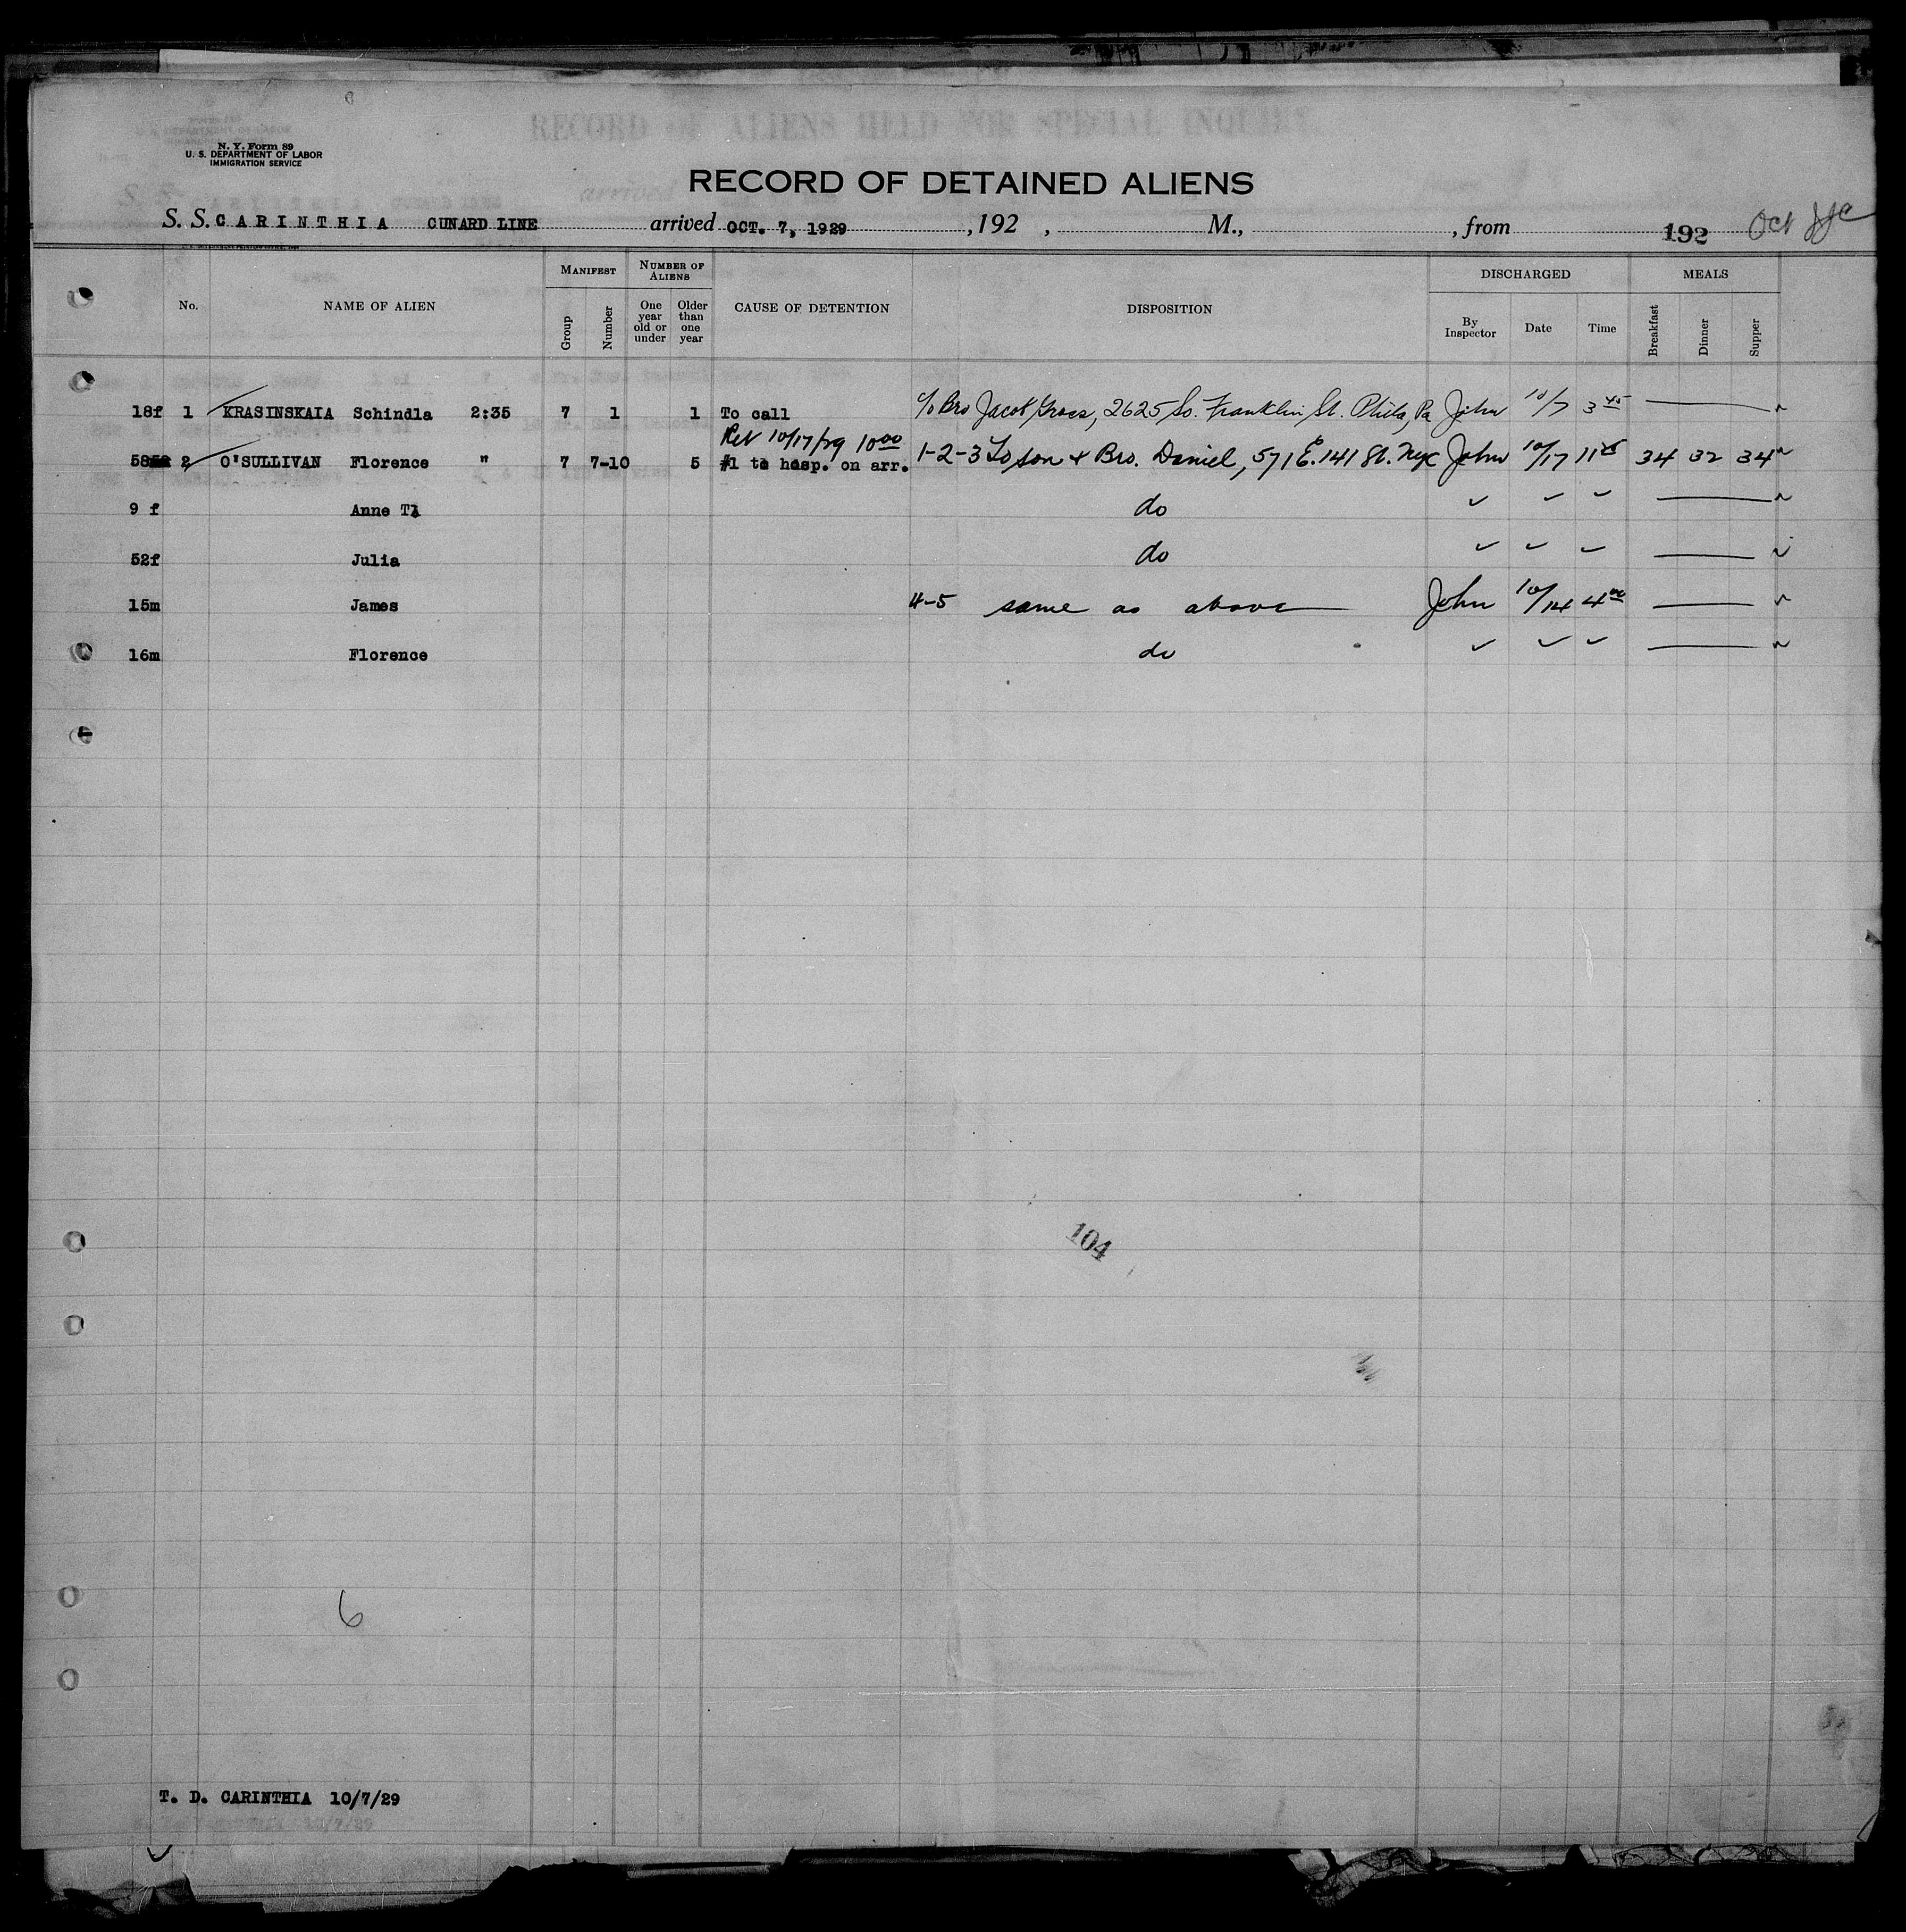 RECORD OF ALIENS HELD FOR SPECIAL INQUIRY
N. Y. Form 89
U. S. DEPARTMENT OF LABOR
IMMIGRATION SERVICE
RECORD OF DETAINED ALIENS
S. S. CARINTHIA CUNARD LINE arrived OCT. 7, 1929, 192 , M., , from 192 Oct
No. NAME OF ALIEN MANIFEST NUMBER OF ALIENS CAUSE OF DETENTION DISPOSITION DISCHARGED MEALS
Group Number One year old or under Older than one year By Inspector Date Time Breakfast Dinner Supper
18f 1 KRASINSKAIA Schindla 2:35 7 1 1 To call c/o Bro Jacob Gross, 2625 So. Franklin St. Phila, Pa John 10/7 3 45
Ret 10/17/29 10 00
58 2 O'SULLIVAN Florence " 7 7-10 5 #1 to hosp. on arr. 1-2-3 To son & Bro. Daniel, 571 E. 141 St. NYC John 10/17 11 34 32 34
9 f Anne do
52f Julia do
15m James 4-5 same as above John 10/14 4 00
16m Florence do
104
6
T. D. CARINTHIA 10/7/29